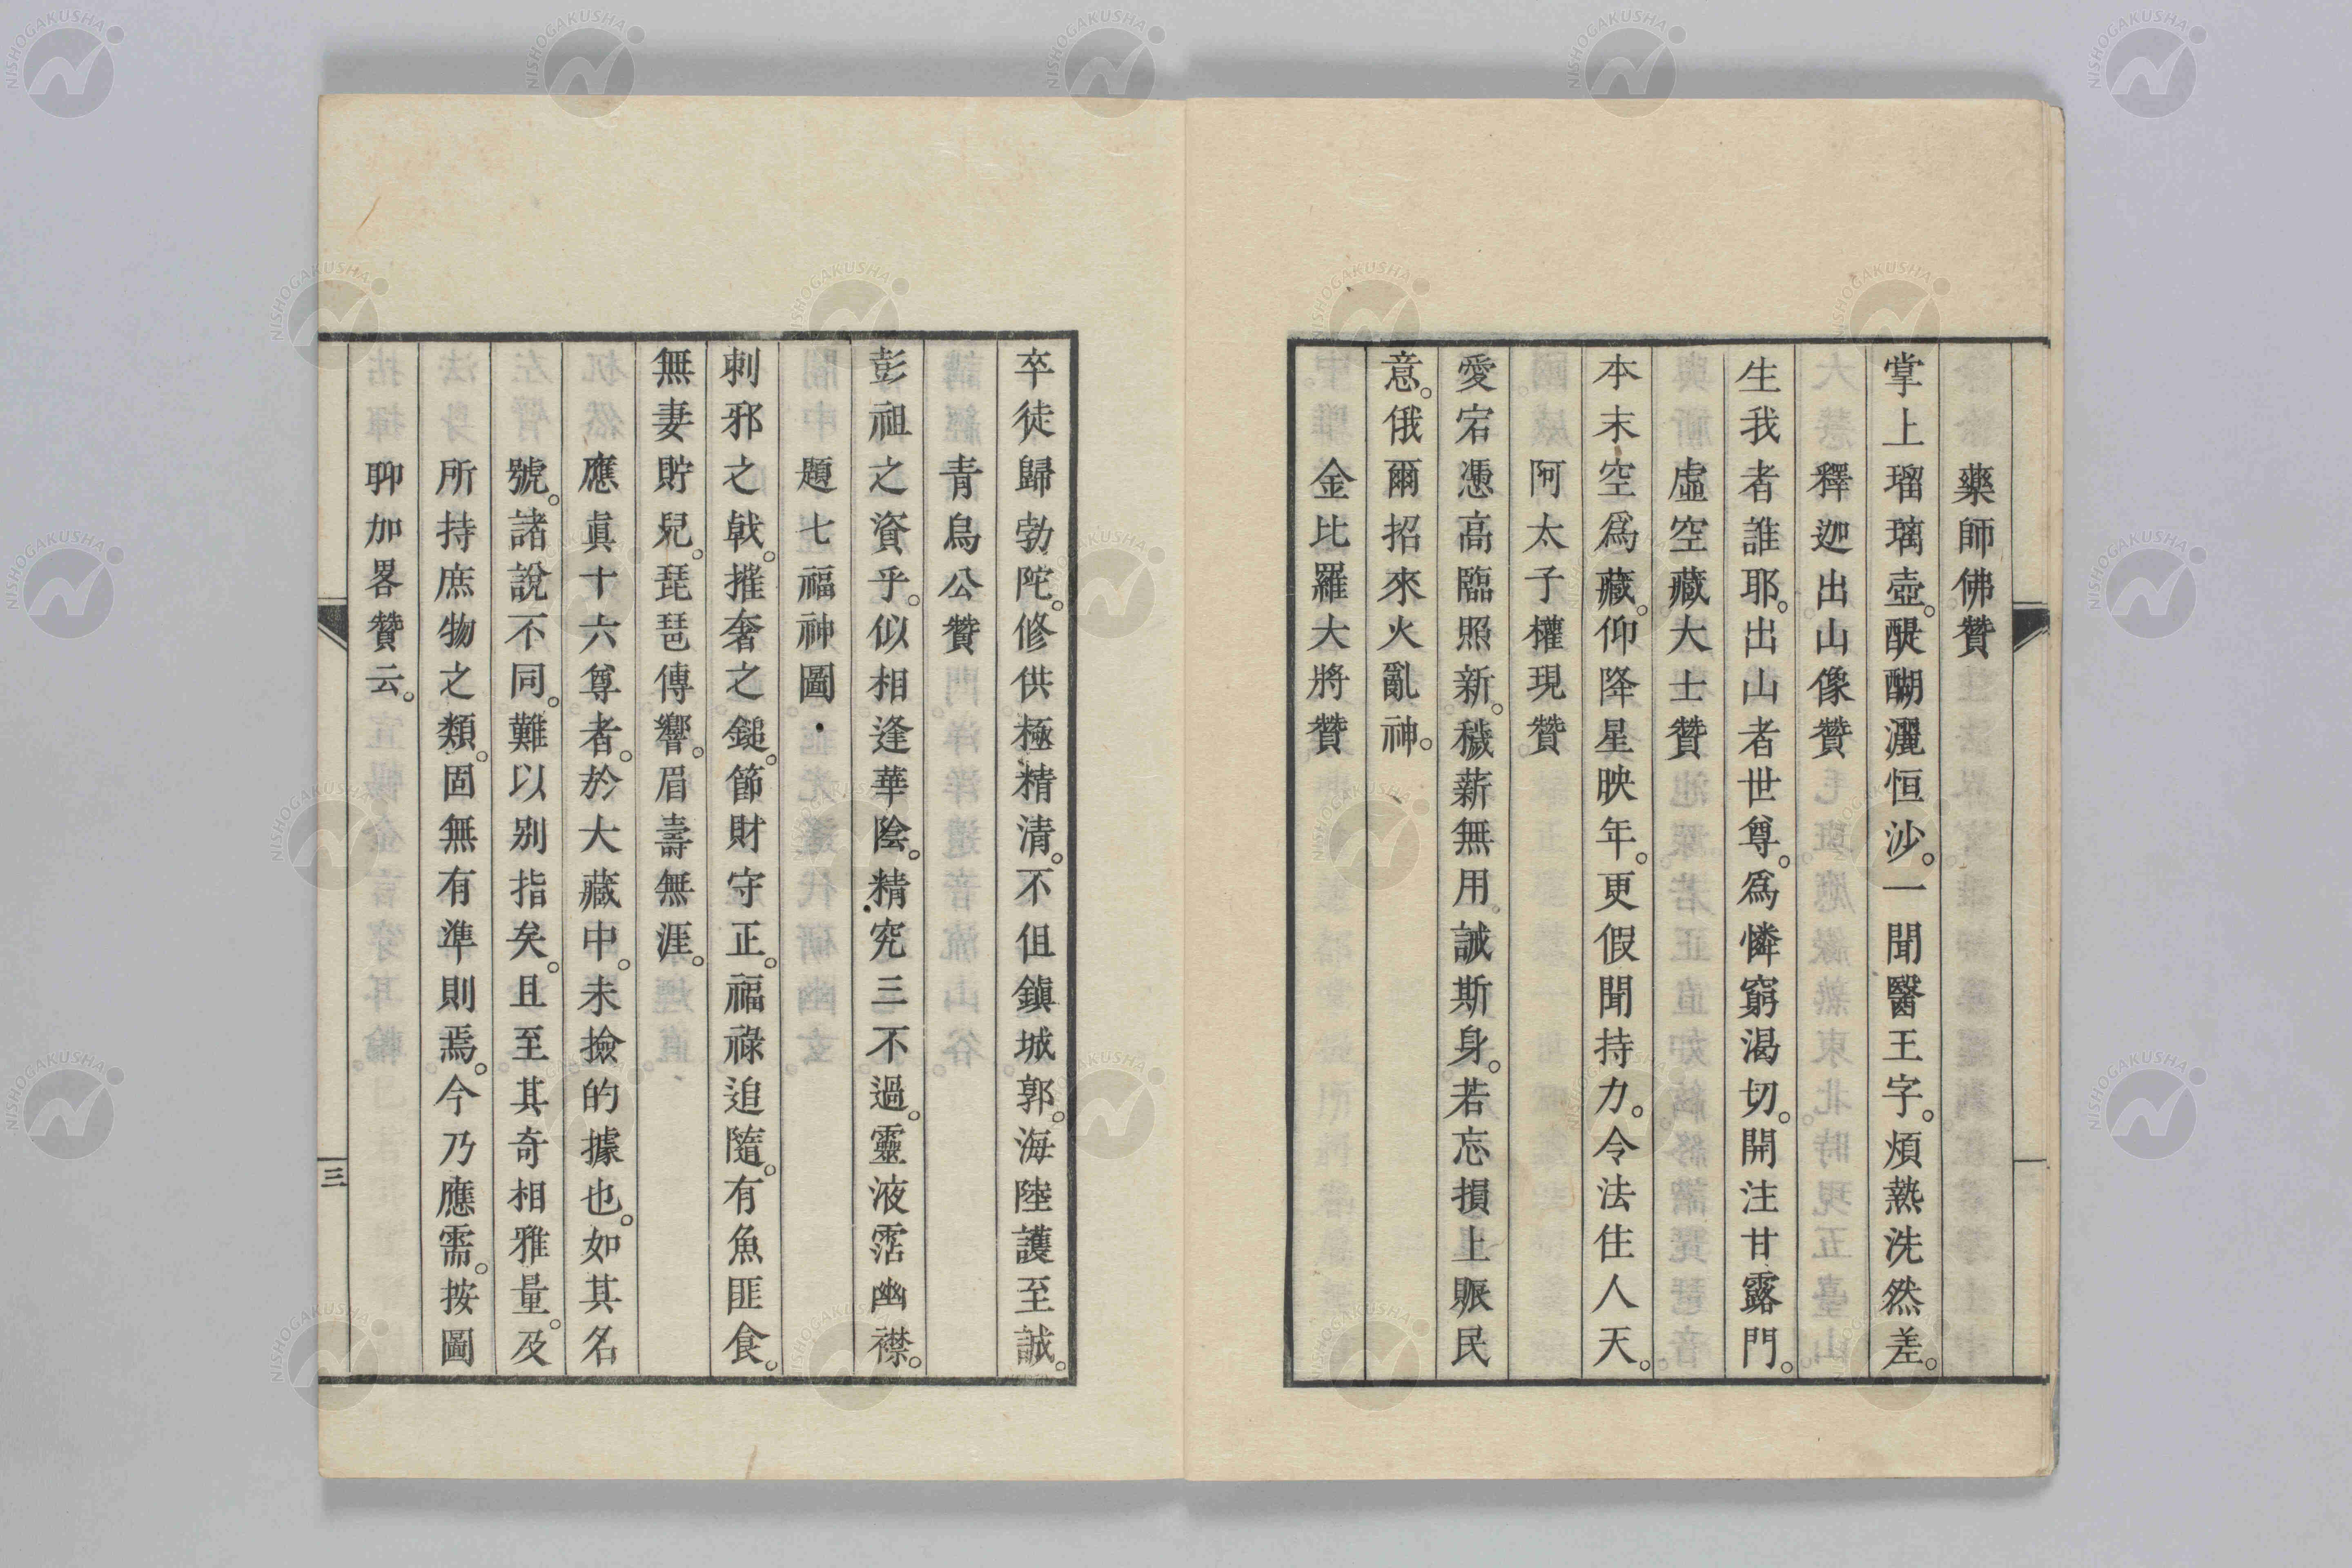 藥師佛贊
掌上瑠璃壺。醍醐灑恒沙。一聞醫王字。煩熱洗然差。
釋迦出山像贊
生我者誰耶。出山者世尊。爲憐窮渴切。開注甘露門。
虛空藏大士贊
本末空爲藏。仰降星映年。更假聞持力。令法住人天。
阿太子權現贊
愛宕憑高臨照新。穢薪無用。誠斯身。若忘損上賑民
意。俄爾招來火亂神。
金比羅大將贊
卒徒歸勃陀。修供極精清。不但鎭城郭。海陸護至誠。
青烏公贊
彭祖之資乎。似相逢華陰。精究三不過。靈液霑幽襟。
題七福神圖
刺邪之戟。摧奢之鎚。節財守正。福祿追隨。有魚匪食。
無妻貯兒。琵琶傳響。眉壽無涯。
應眞十六尊者。於大藏中。未撿的據也。如其名
號。諸說不同。難以別指矣。且至其奇相雅量。及
所持庶物之類。固無有準則焉。今乃應需。按圖
聊加畧贊云。
三
NISHOGAKUSHA